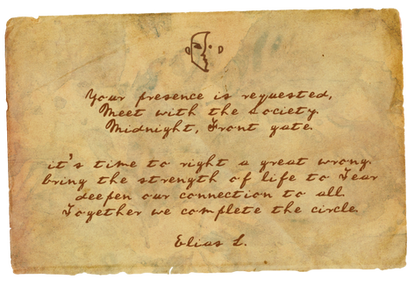 Your presence is requested,
Meet with the society.
Midnight, Front gate.
it's time to right a great wrong.
bring the strength of life to Tear
deepen our connection to all
Together we complete the circle.
Elias L.